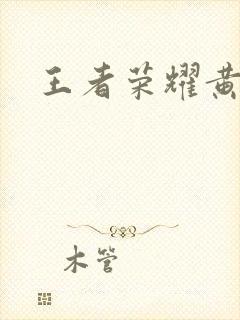 王者荣耀黄
木管